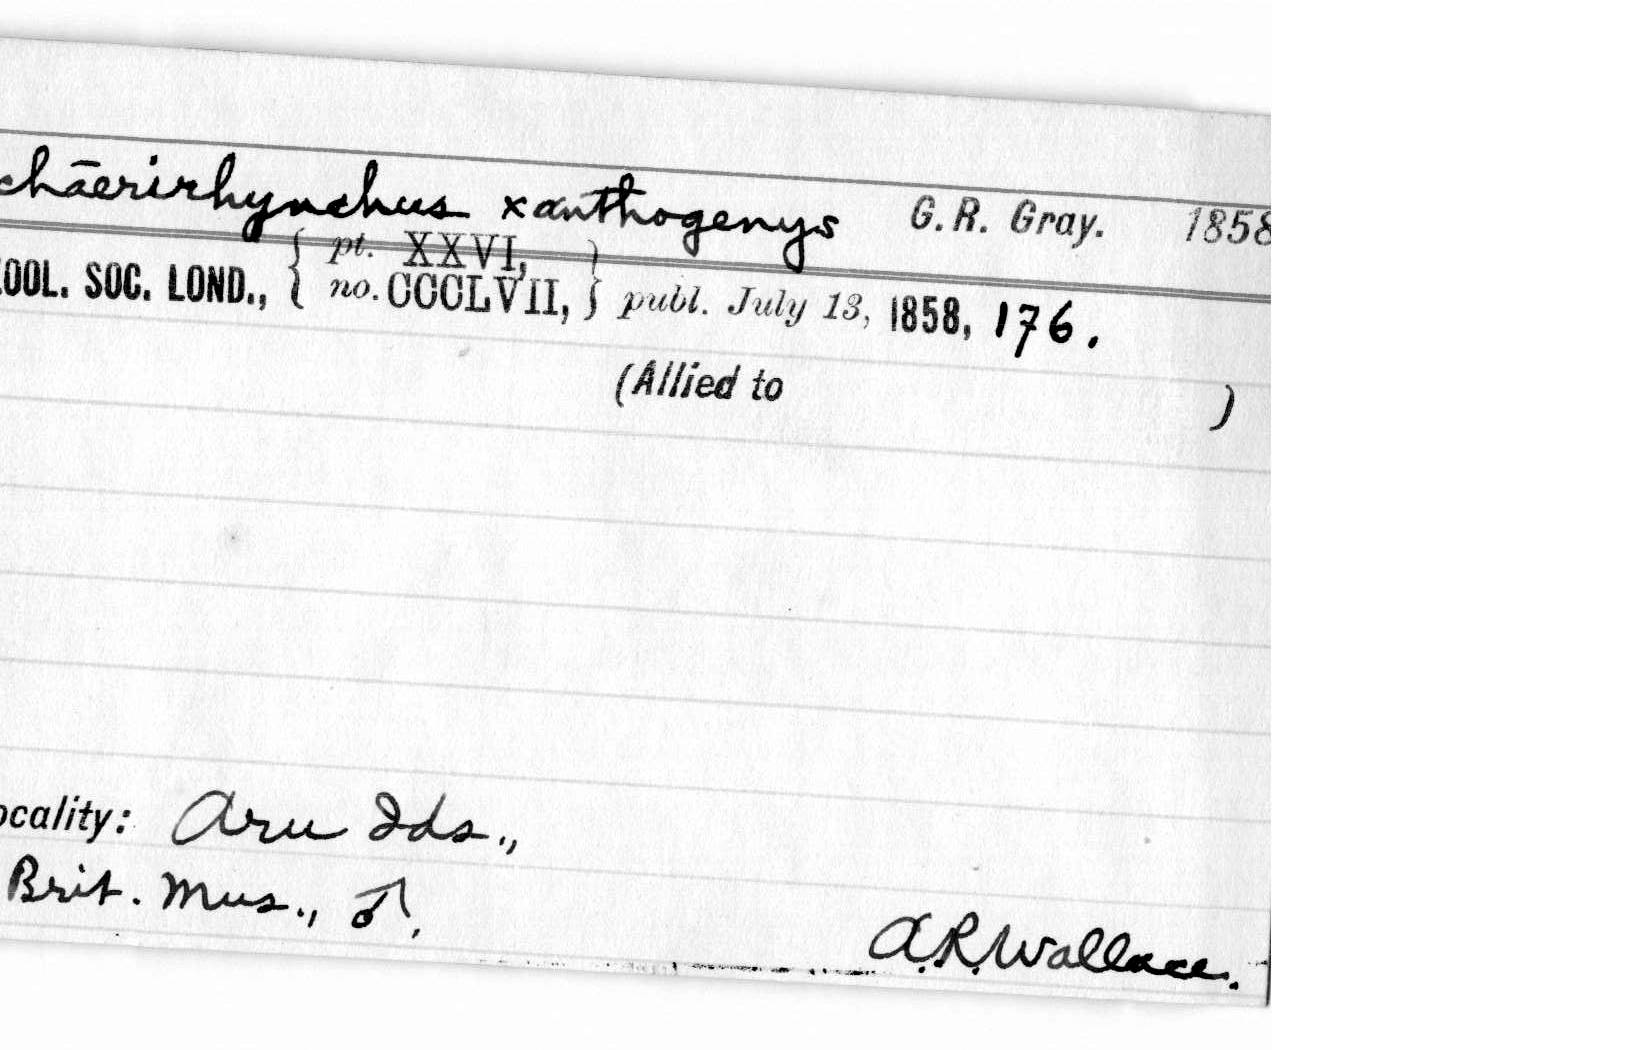 chāerirhynchus xanthogenys G. R. Gray. 1858
OOL. SOC. LOND., { pt. XXVI, no. CCCLVII, } publ. July 13, 1858, 176.
(Allied to )
ocality: Aru Ids.,
Brit. Mus., ♂,
A.R. Wallace.